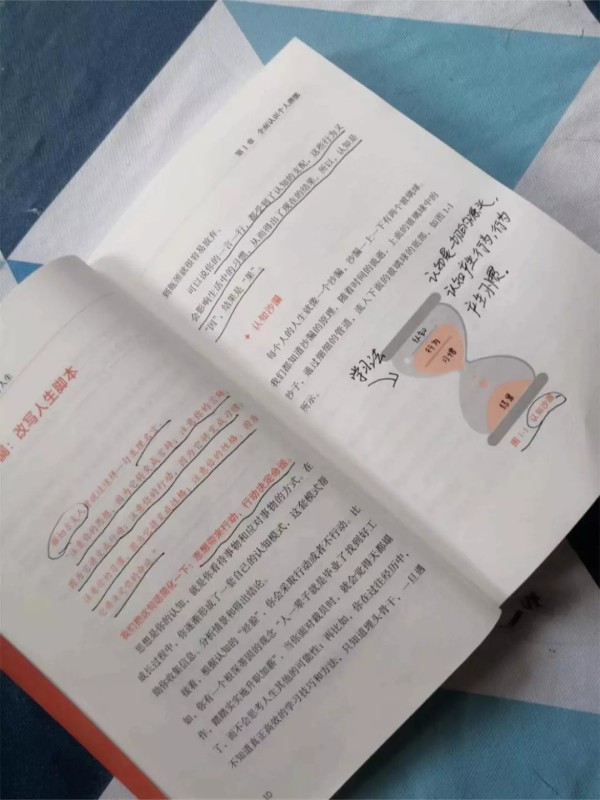 人生
改写人生脚本
撒切尔夫人
我们把这句话简化一下：思想带来行动，行动决定命运。
思想是你的认知，就是你看待事物和应对事物的方式。在
成长过程中，你逐渐形成了一套自己的认知模式，这套模式帮
助你收集信息、分析情景和得出结论。
接着，根据认知的“经验”，你会采取行动或者不行动。比
如，你有一个根深蒂固的观念“人一辈子就是毕业了找到好工
作，踏踏实实地升职加薪”，当你面对裁员时，就会觉得天都塌
了，而不会思考人生其他的可能性；再比如，你在过往经历中，
不知道真正高效的学习技巧和方法，只知道埋头苦干，一旦遇
10
第1章 全面认识个人牌集
到瓶颈就很容易放弃。
可以说你的一言一行，都受到了认知的支配，这些行为又
会影响生活中的习惯，从而得出了现在的结果。所以，认知是
“因”，结果是“果”。
认知沙漏
每个人的人生就像一个沙漏，沙漏一上一下有两个玻璃球。
我们都知道沙漏的原理，随着时间的流逝，上面的玻璃球中的
沙子，通过细细的管道，流入下面的玻璃球的底部，如图1-1
所示。
认知是一切的源头，
认知产生行为，行为
产生习惯。
认知
行为
习惯
结果
图1-1 认知沙漏